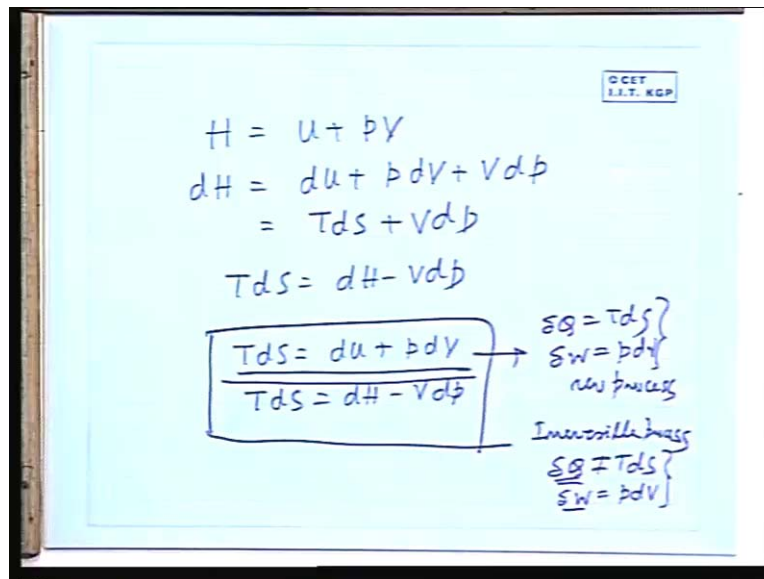 © CET
I.I.T. KGP
H = U + pV
dH = dU + pdV + Vdp
= Tds + Vdp
Tds = dH - Vdp
Tds = dU + pdV
Tds = dH - Vdp
δQ = Tds
δW = pdV
rev process
Irreversible process
δQ ≠ Tds
δW = pdV